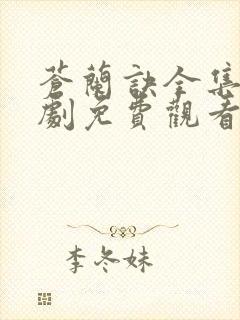 蒼蘭訣全集
劇免費觀看
李冬妹